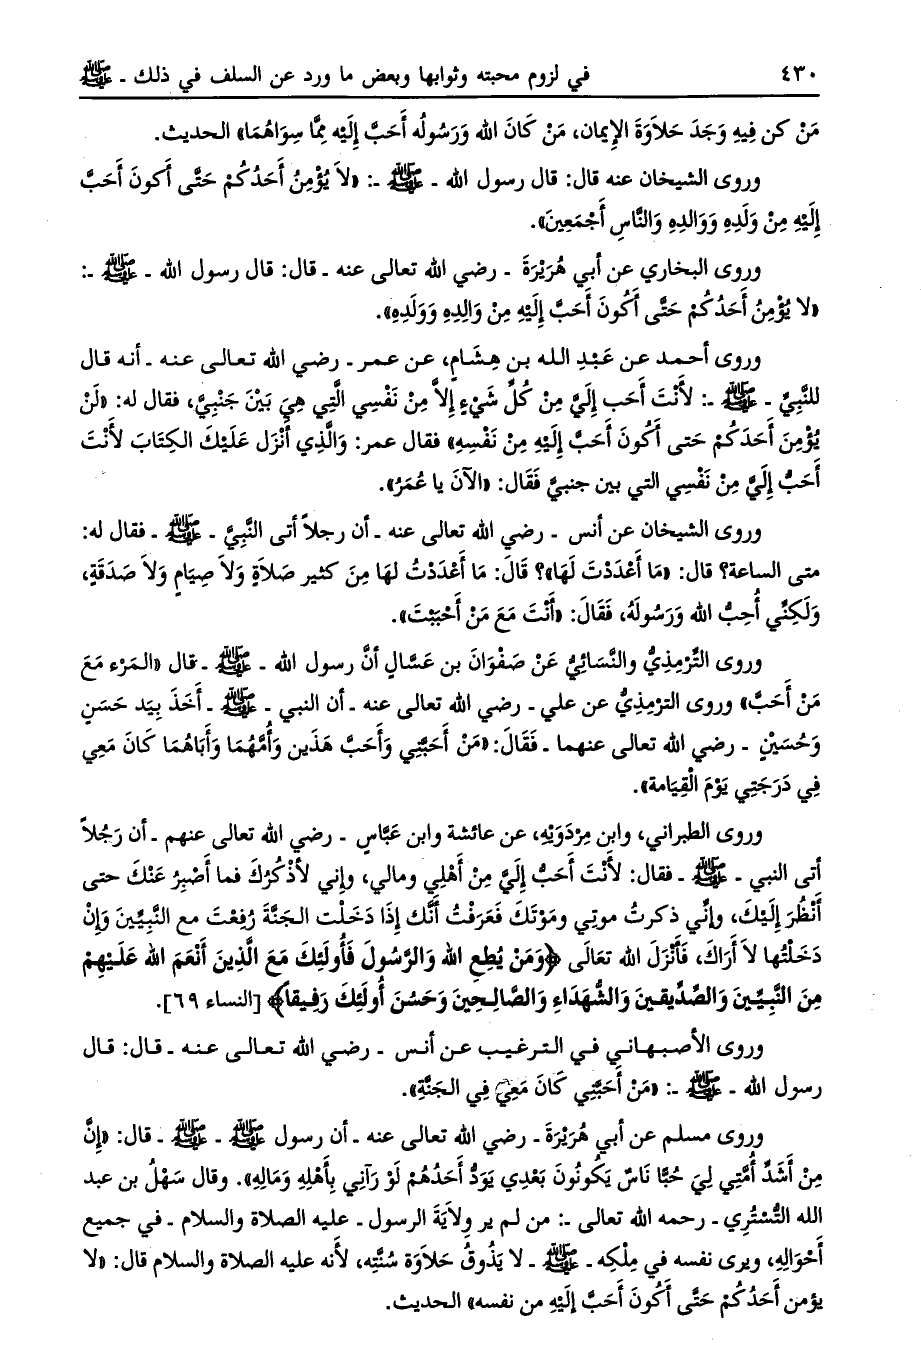 ٤٣٠ في لزوم محبته وثوابها وبعض ما ورد عن السلف في ذلك ـ ﷺ
مَنْ كن فِيهِ وَجَدَ حَلاَوَةَ الإِيمان، مَنْ كَانَ الله وَرَسُولُه أَحَبَّ إِلَيْه مِمَّا سِوَاهُمَا» الحديث.
وروى الشيخان عنه قال: قال رسول الله ـ ﷺ ـ: «لاَ يُؤْمِنُ أَحَدُكُمْ حَتَّى أَكونَ أَحَبَّ
إِلَيْهِ مِنْ وَلَدِهِ وَوَالدِهِ وَالنَّاسِ أَجْمَعِينَ».
وروى البخاري عن أبي هُرَيْرَةَ ـ رضي الله تعالى عنه ـ قال: قال رسول الله ـ ﷺ ـ:
«لا يُؤْمِنُ أَحَدُكُمْ حَتَّى أَكُونَ أَحَبَّ إِلَيْهِ مِنْ وَالِدِهِ وَوَلَدِهِ».
وروى أحمد عن عَبْدِ الله بن هِشَامٍ، عن عمر ـ رضي الله تعالى عنه ـ أنه قال
للنَّبِيِّ ـ ﷺ ـ: لأَنْتَ أَحَب إِلَيَّ مِنْ كُلِّ شَيْءٍ إِلاَّ مِنْ نَفْسِي الَّتِي هِيَ بَيْنَ جَنْبِيَّ، فقال له: «لَنْ
يُؤْمِنَ أَحَدَكُمْ حَتى أَكُونَ أَحَبَّ إِلَيْهِ مِنْ نَفْسِهِ» فقال عمر: وَالَّذِي أَنْزَل عَلَيْكَ الكِتَابَ لأَنْتَ
أَحَبُّ إِلَيَّ مِنْ نَفْسِي التي بين جنبيَّ فَقَالَ: «الآنَ يا عُمَرُ».
وروى الشيخان عن أنس ـ رضي الله تعالى عنه ـ أن رجلاً أتى النَّبِيَّ ـ ﷺ ـ فقال له:
متى الساعة؟ قال: «مَا أَعْدَدْتَ لَهَا»؟ قَالَ: مَا أَعْدَدْتُ لهَا مِنَ كثير صَلاَةٍ وَلاَ صِيَامٍ وَلاَ صَدَقَةٍ،
وَلَكِنِّي أُحِبُّ الله وَرَسُولَهُ، فَقَالَ: «أَنْتَ مَعَ مَنْ أَحْبَبْتَ».
وروى التِّرْمِذِيُّ والنَّسَائِيُّ عَنْ صَفْوَانَ بن عَسَّالٍ أنَّ رسول الله ـ ﷺ ـ قال «المَرْء مَعَ
مَنْ أَحَبَّ» وروى الترْمِذِيُّ عن علي ـ رضي الله تعالى عنه ـ أن النبي ـ ﷺ ـ أَخَذَ بِيَد حَسَنٍ
وَحُسَيْنٍ ـ رضي الله تعالى عنهما ـ فَقَالَ: «مَنْ أَحَبَّنِي وَأَحَبَّ هَذَين وَأُمَّهُمَا وَأَبَاهُمَا كَانَ مَعِي
فِي دَرَجَتِي يَوْمَ الْقِيَامة».
وروى الطبراني، وابن مِرْدَوَيْهِ، عن عائشة وابن عَبَّاسٍ ـ رضي الله تعالى عنهم ـ أن رَجُلاً
أتى النبي ـ ﷺ ـ فقال: لأَنْتَ أَحَبُّ إِلَيَّ مِنْ أَهْلِي ومالي، وإني لأَذْكُرُكَ فما أَصْبِرُ عَنْكَ حتى
أَنْظُرَ إِلَيْكَ، وإنِّي ذكرتُ موتِي ومَوْتَكَ فَعَرَفْتُ أَنَّك إِذَا دَخَلْت الجَنَّةَ رُفِعْتَ مع النَّبِيِّينَ وَإِنْ
دَخَلْتُها لاَ أَرَاكَ، فَأَنْزَلَ الله تعَالَى ﴿وَمَنْ يُطِعِ الله وَالرَّسُولَ فَأُولَئِكَ مَعَ الَّذِينَ أَنْعَمَ الله عَلَيْهِمْ
مِنَ النَّبِيِّينَ وَالصِّدِّيقينَ وَالشُّهَدَاءِ وَالصَّالِحينَ وَحَسُنَ أُولَئِكَ رَفِيقاً﴾ [النساء ٦٩].
وروى الأصبهاني في الترغيب عن أنس ـ رضي الله تعالى عنه ـ قال: قال
رسول الله ـ ﷺ ـ: «مَنْ أَحَبَّنِي كَانَ مَعِيَ فِي الجَنَّةِ».
وروى مسلم عن أبي هُرَيْرَةَ ـ رضي الله تعالى عنه ـ أن رسول ﷺ ـ ﷺ ـ قال: «إنَّ
مِنْ أَشَدِّ أُمَّتِي لِيَ حُبًّا نَاسٌ يَكُونُونَ بَعْدِي يَوَدُّ أَحَدُهُمْ لَوْ رَآنِي بِأَهْلِهِ وَمَالِهِ». وقال سَهْلُ بن عبد
الله التُّسْتُرِي ـ رحمه الله تعالى ـ: من لم ير وِلاَيَةَ الرسول ـ عليه الصلاة والسلام ـ في جميع
أَحْوَالِهِ، ويرى نفسه في مِلْكِه ـ ﷺ ـ لا يَذُوقُ حَلاَوَة سُنَّتِه، لأنه عليه الصلاة والسلام قال: «لا
يؤمن أَحَدُكُمْ حَتَّى أَكُونَ أَحَبَّ إِلَيْهِ من نفسه» الحديث.